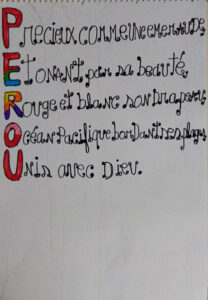 Précieux comme une emeraude
Etonant par sa beauté
Rouge et blanc son drapeau
Océan Pacifique bordant ses plages
Unis avec Dieu.